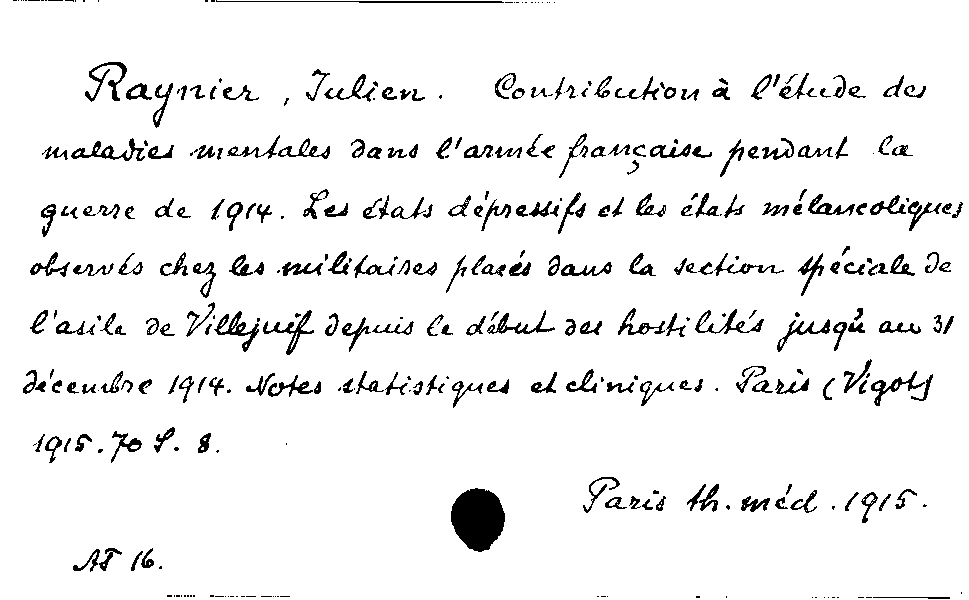 Raynier, Julien. Contribution à l'étude des
maladies mentales dans l'armée française pendant la
guerre de 1914. Les états dépressifs et les états mélancoliques
observés chez les militaires placés dans la section spéciale de
l'asile de Villejuif depuis le début des hostilités jusqu'au 31
décembre 1914. Notes statistiques et cliniques. Paris (Vigot)
1915. 70 S. 8.
Paris th. méd. 1915.
AT 16.